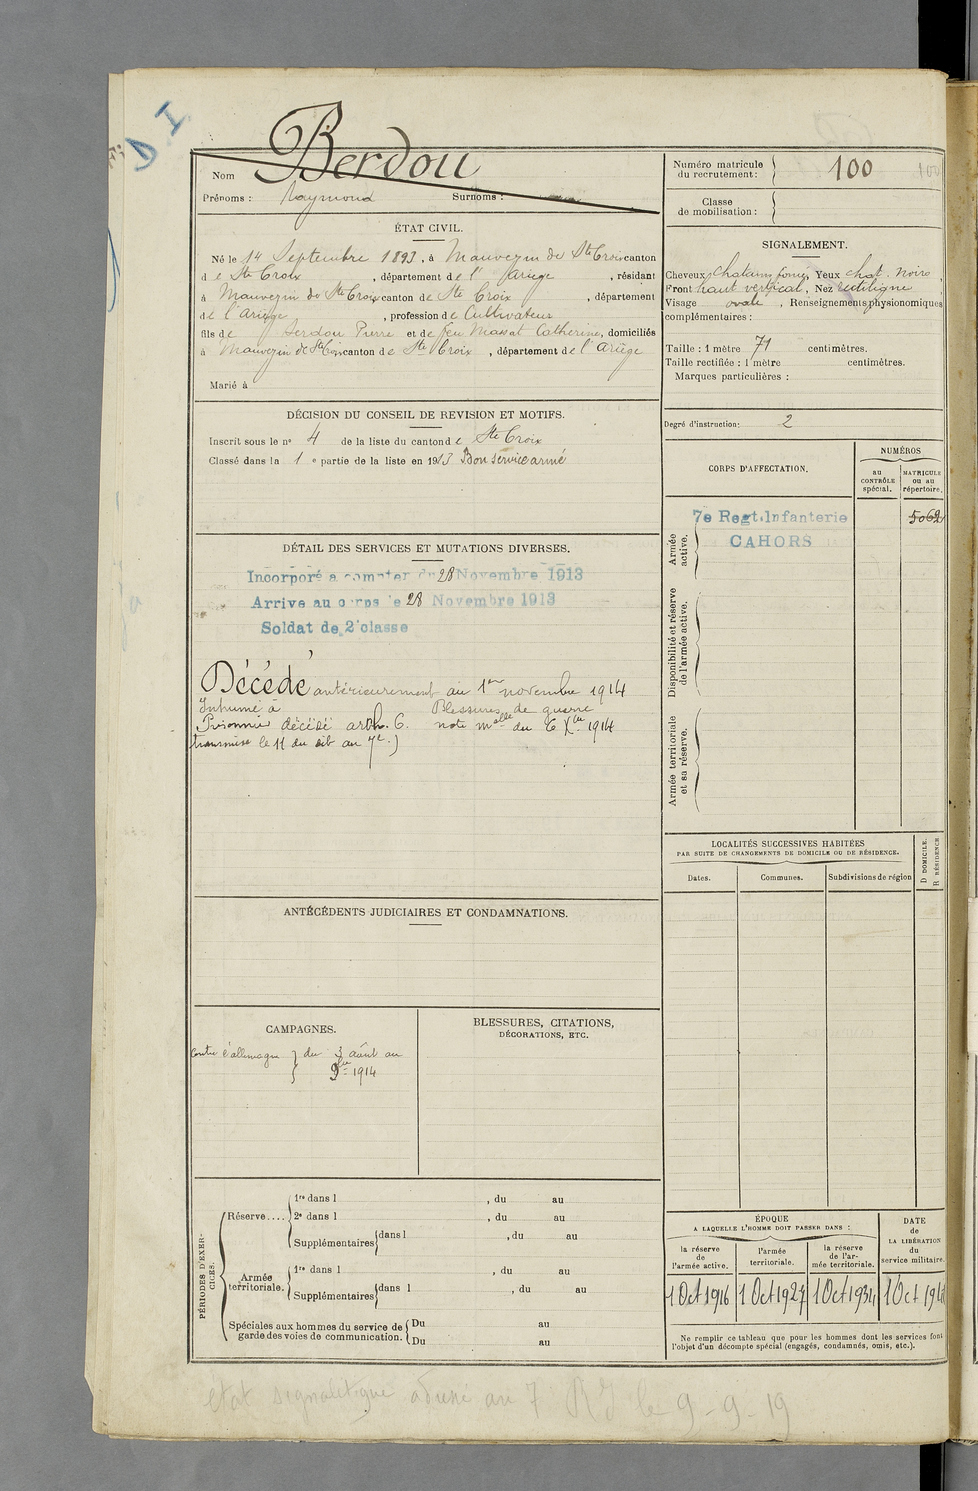 D I
Nom Berdou
Prénoms : Raymond Surnoms :
ÉTAT CIVIL.
Né le 14 Septembre 1893, à Mauvezin de Ste Croix canton
de Ste Croix, département de l' Ariège, résidant
à Mauvezin de Ste Croix canton de Ste Croix, département
de l'Ariège, profession de Cultivateur
fils de Berdou Pierre et de feu Massat Catherine, domiciliés
à Mauvezin de Ste Croix canton de Ste Croix, département de l'Ariège
Marié à
DÉCISION DU CONSEIL DE REVISION ET MOTIFS.
Inscrit sous le no 4 de la liste du canton de Ste Croix
Classé dans la 1e partie de la liste en 1913 Bon service armé
DÉTAIL DES SERVICES ET MUTATIONS DIVERSES.
Incorporé a compter du 28 Novembre 1913
Arrive au corps le 28 Novembre 1913
Soldat de 2e classe
Décédé antérieurement au 1er novembre 1914
Inhumé à Blessures de guerre
Prisonnier décédé note du 6 Xbre 1914
transmise le 11 du dit au 7e.)
ANTÉCÉDENTS JUDICIAIRES ET CONDAMNATIONS.
CAMPAGNES.
Contre l'allemagne } du 3 août au
1914
BLESSURES, CITATIONS,
DÉCORATIONS, ETC.
PÉRIODES D'EXERCICES.
Réserve.... 1re dans l , du au
2e dans l , du au
Supplémentaires dans l , du au
Armée territoriale. 1re dans l , du au
Supplémentaires dans l , du au
Spéciales aux hommes du service de garde des voies de communication. Du au
Du au
Numéro matricule
du recrutement : 100 100
Classe
de mobilisation :
SIGNALEMENT.
Cheveux chatains foncé, Yeux chat. noirs,
Front haut vertical, Nez rectiligne,
Visage ovale, Renseignements physionomiques
complémentaires :
Taille : 1 mètre 71 centimètres.
Taille rectifiée : 1 mètre centimètres.
Marques particulières :
Degré d'instruction: 2
CORPS D'AFFECTATION.
NUMÉROS
au
CONTRÔLE
spécial.
MATRICULE
ou au
répertoire.
7e Regt. Infanterie 5062
CAHORS
Armée
active.
Disponibilité et réserve
de l'armée active.
Armée territoriale
et sa réserve.
LOCALITÉS SUCCESSIVES HABITÉES
PAR SUITE DE CHANGEMENTS DE DOMICILE OU DE RÉSIDENCE.
Dates. Communes. Subdivisions de région
D DOMICILE.
R RÉSIDENCE
ÉPOQUE
A LAQUELLE L'HOMME DOIT PASSER DANS :
la réserve
de
l'armée active.
l'armée
territoriale.
la réserve
de l'armée territoriale.
DATE
de
LA LIBÉRATION
du
service militaire.
1 Oct 1916 1 Oct 1927 1 Oct 1934 1 Oct 1941
Ne remplir ce tableau que pour les hommes dont les services font
l'objet d'un décompte spécial (engagés, condamnés, omis, etc.).
état signalétique adressé au 7 RI le 9-9-19